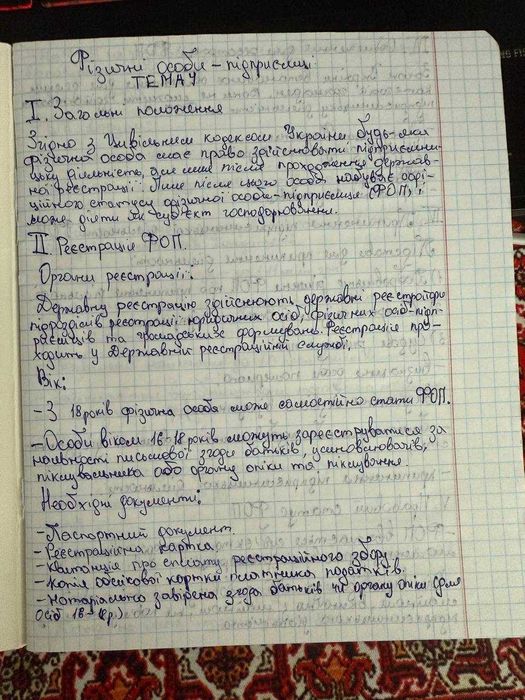 Фізичні особи - підприємці
ТЕМА 4
I. Загальні положення
Згідно з Цивільним кодексом України будь-яка
фізична особа має право здійснювати підприємни-
цьку діяльність, але лише після проходження держав-
ної реєстрації. Лише після цього особа набуває офі-
ційного статусу фізичної особи-підприємця (ФОП) і
може діяти як суб'єкт господарювання.
II. Реєстрація ФОП.
Органи реєстрації:
Державну реєстрацію здійснюють державні реєстратори
підрозділів реєстрації юридичних осіб, фізичних осіб-підп-
риємців та громадських формувань. Реєстрація про-
ходить у Державній реєстраційній службі.
Вік:
- З 18 років фізична особа може самостійно стати ФОП.
- Особи віком 16-18 років можуть зареєструватися за
наявності письмової згоди батьків, усиновлювачів,
піклувальника або органу опіки та піклування.
Необхідні документи:
- Паспортний документ
- Реєстраційна картка
- Квитанція про сплату реєстраційного збору
- Копія облікової картки платника податків.
- Нотаріально завірена згода батьків чи органу опіки (для
осіб 16-18р.)